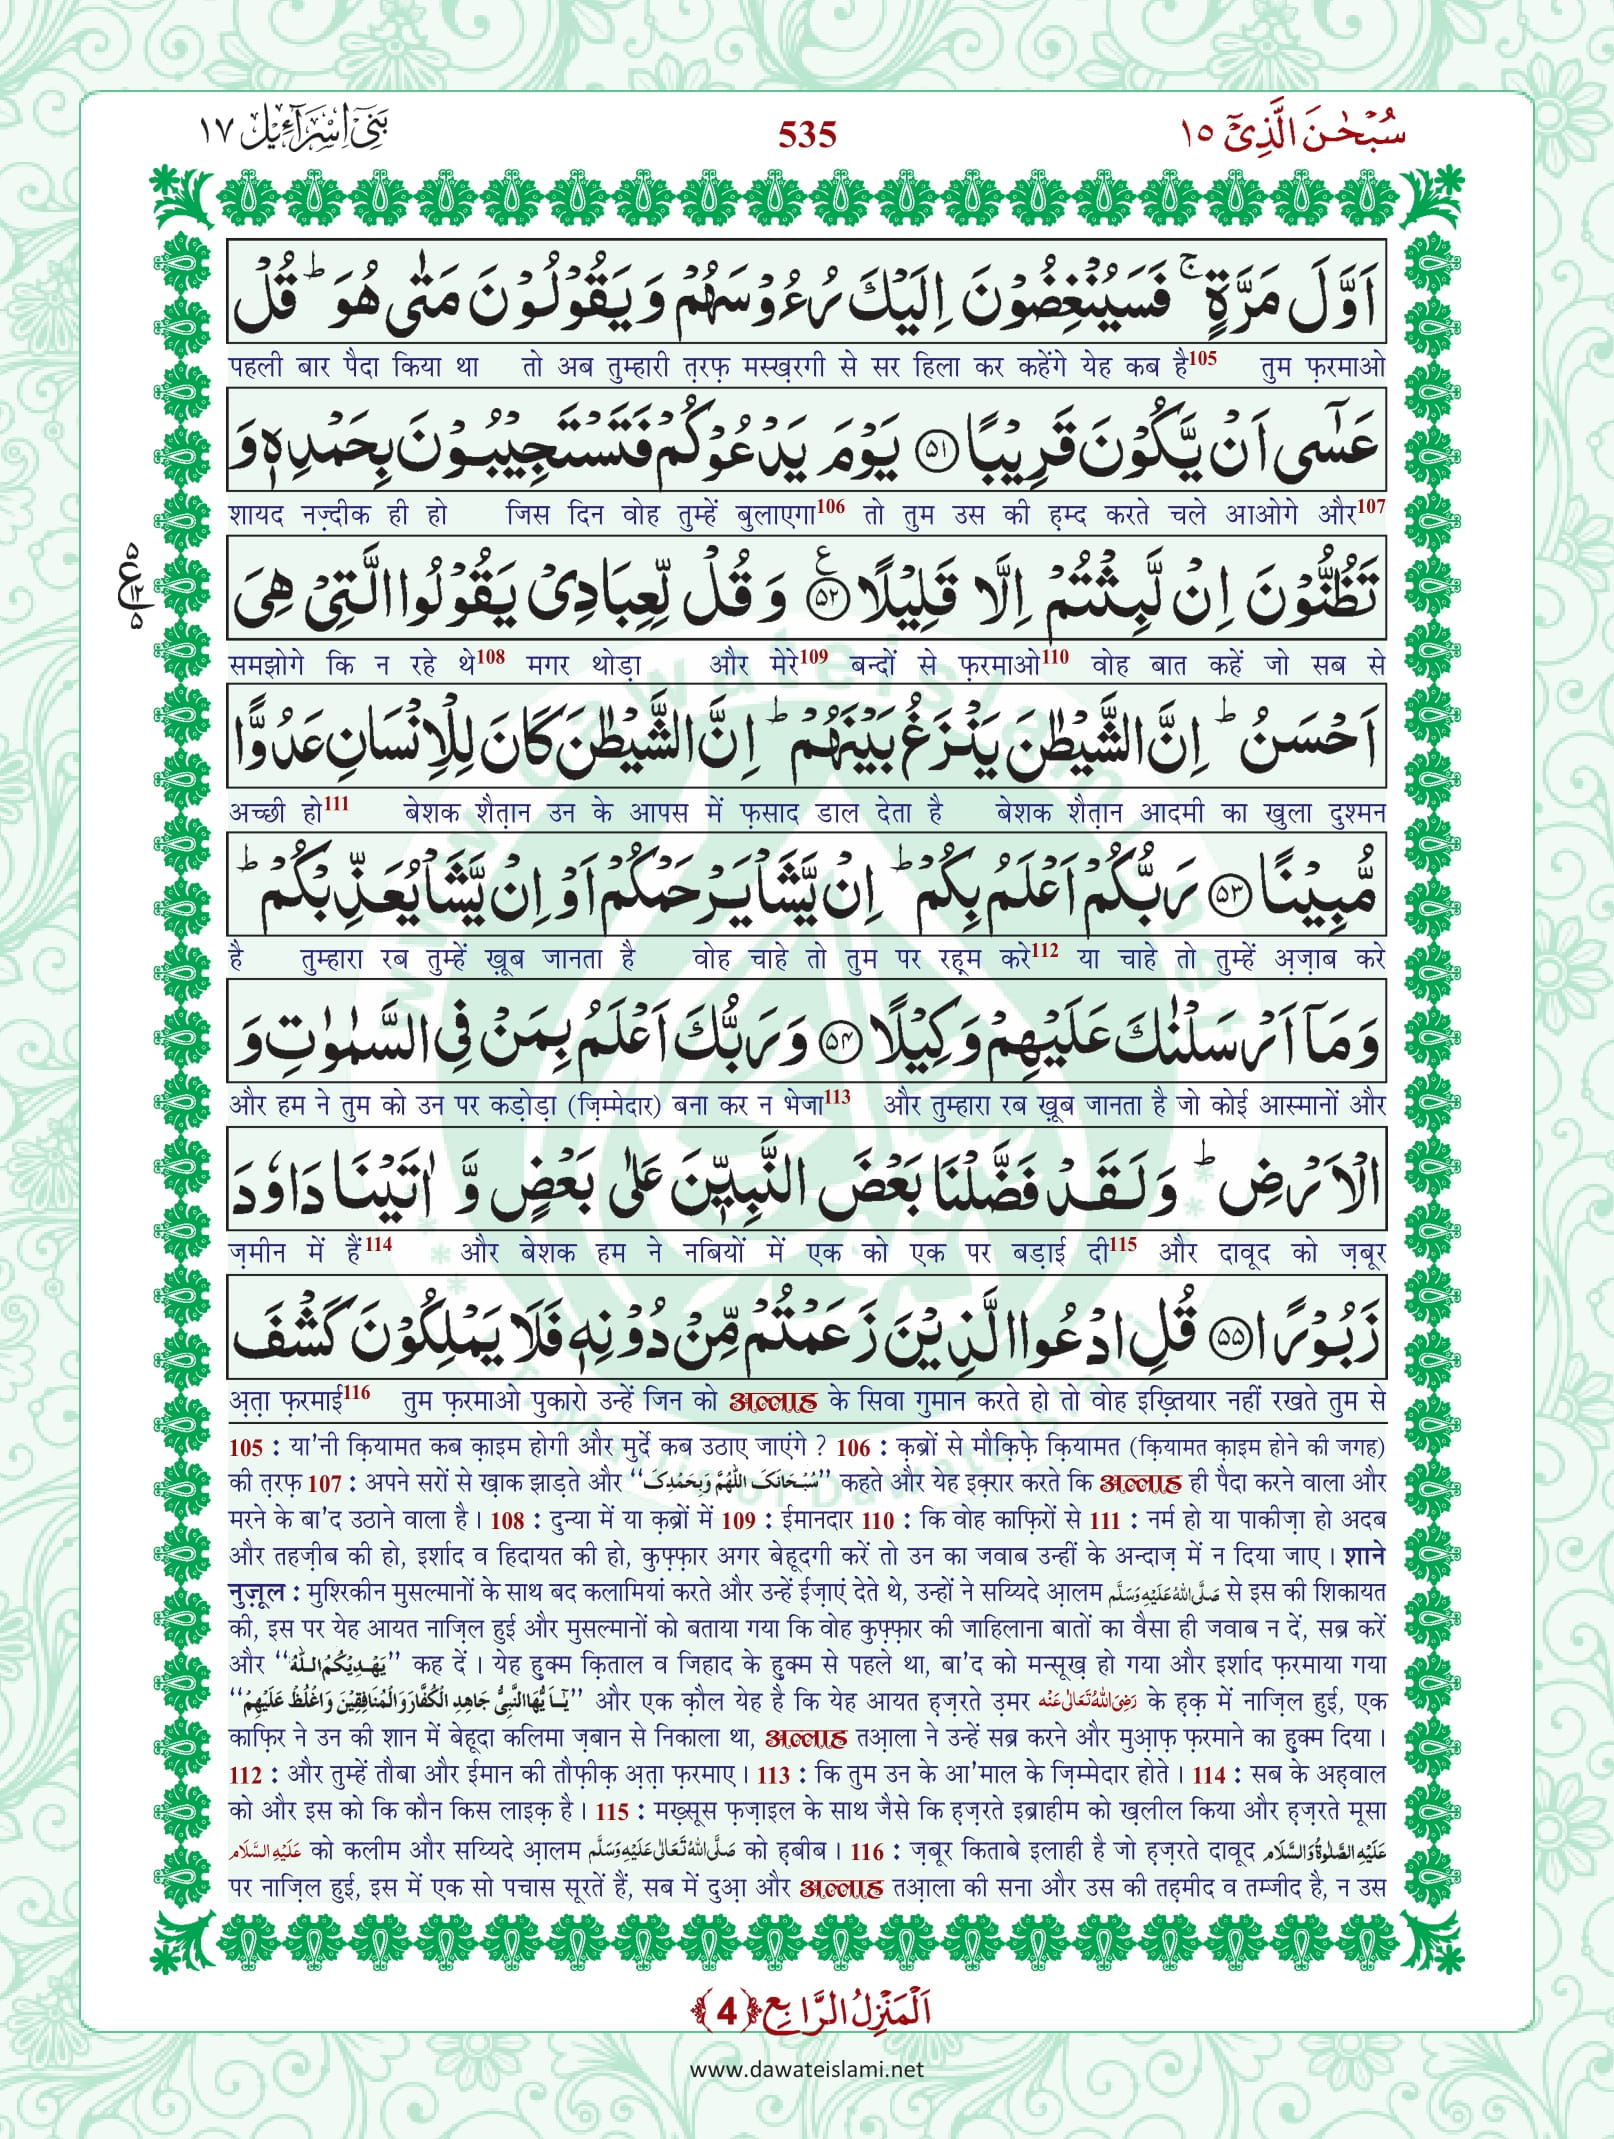 سُبْحٰنَ الَّذِىْۤ ١٥
535
بَنِىْۤ اِسْرَآءِيْل ١٧
اَوَّلَ مَرَّةٍ ۚ فَسَيُنْغِضُوْنَ اِلَيْكَ رُءُوْسَهُمْ وَ يَقُوْلُوْنَ مَتٰى هُوَ ؕ قُلْ
पहली बार पैदा किया था तो अब तुम्हारी त़रफ़ मस्ख़रगी से सर हिला कर कहेंगे येह कब है105 तुम फ़रमाओ
عَسٰۤى اَنْ يَّكُوْنَ قَرِيْبًا ﴿۵۱﴾ يَوْمَ يَدْعُوْكُمْ فَتَسْتَجِيْبُوْنَ بِحَمْدِهٖ وَ
शायद नज़्दीक ही हो जिस दिन वोह तुम्हें बुलाएगा106 तो तुम उस की ह़म्द करते चले आओगे और107
تَظُنُّوْنَ اِنْ لَّبِثْتُمْ اِلَّا قَلِيْلًا ﴿۵۲﴾ ع وَ قُلْ لِّعِبَادِىْ يَقُوْلُوا الَّتِىْ هِىَ
۵ ع ١٢ ۵
समझोगे कि न रहे थे108 मगर थोड़ा और मेरे109 बन्दों से फ़रमाओ110 वोह बात कहें जो सब से
اَحْسَنُ ؕ اِنَّ الشَّيْطٰنَ يَنْزَغُ بَيْنَهُمْ ؕ اِنَّ الشَّيْطٰنَ كَانَ لِلْاِنْسَانِ عَدُوًّا
अच्छी हो111 बेशक शैत़ान उन के आपस में फ़साद डाल देता है बेशक शैत़ान आदमी का खुला दुश्मन
مُّبِيْنًا ﴿۵۳﴾ رَبُّكُمْ اَعْلَمُ بِكُمْ ؕ اِنْ يَّشَاْ يَرْحَمْكُمْ اَوْ اِنْ يَّشَاْ يُعَذِّبْكُمْ ؕ
है तुम्हारा रब तुम्हें ख़ूब जानता है वोह चाहे तो तुम पर रह़म करे112 या चाहे तो तुम्हें अ़ज़ाब करे
وَ مَاۤ اَرْسَلْنٰكَ عَلَيْهِمْ وَكِيْلًا ﴿۵۴﴾ وَ رَبُّكَ اَعْلَمُ بِمَنْ فِى السَّمٰوٰتِ وَ
और हम ने तुम को उन पर कड़ोड़ा (ज़िम्मेदार) बना कर न भेजा113 और तुम्हारा रब ख़ूब जानता है जो कोई आस्मानों और
الْاَرْضِ ؕ وَ لَقَدْ فَضَّلْنَا بَعْضَ النَّبِيّٖنَ عَلٰى بَعْضٍ وَّ اٰتَيْنَا دَاوٗدَ
ज़मीन में हैं114 और बेशक हम ने नबियों में एक को एक पर बड़ाई दी115 और दावूद को ज़बूर
زَبُوْرًا ﴿۵۵﴾ قُلِ ادْعُوا الَّذِيْنَ زَعَمْتُمْ مِّنْ دُوْنِهٖ فَلَا يَمْلِكُوْنَ كَشْفَ
अ़त़ा फ़रमाई116 तुम फ़रमाओ पुकारो उन्हें जिन को अल्लाह के सिवा गुमान करते हो तो वोह इख़्तियार नहीं रखते तुम से
105 : या'नी क़ियामत कब क़ाइम होगी और मुर्दे कब उठाए जाएंगे ? 106 : क़ब्रों से मौक़िफ़े क़ियामत (क़ियामत क़ाइम होने की जगह)
की त़रफ़ 107 : अपने सरों से ख़ाक झाड़ते और ‘‘سُبْحَانَکَ اللّٰهُمَّ وَبِحَمْدِکَ’’ कहते और येह इक़्रार करते कि अल्लाह ही पैदा करने वाला और
मरने के बा'द उठाने वाला है। 108 : दुन्या में या क़ब्रों में 109 : ईमानदार 110 : कि वोह काफ़िरों से 111 : नर्म हो या पाकीज़ा हो अदब
और तहज़ीब की हो, इर्शाद व हिदायत की हो, कुफ़्फ़ार अगर बेहूदगी करें तो उन का जवाब उन्हीं के अन्दाज़ में न दिया जाए। शाने
नुज़ूल : मुश्रिकीन मुसल्मानों के साथ बद कलामियां करते और उन्हें ईज़ाएं देते थे, उन्हों ने सय्यिदे आ़लम صَلَّی اللهُ عَلَیْهِ وَسَلَّم से इस की शिकायत
की, इस पर येह आयत नाज़िल हुई और मुसल्मानों को बताया गया कि वोह कुफ़्फ़ार की जाहिलाना बातों का वैसा ही जवाब न दें, सब्र करें
और ‘‘یَهْدِیْکُمُ اللّٰهُ’’ कह दें। येह हुक्म क़िताल व जिहाद के हुक्म से पहले था, बा'द को मन्सूख़ हो गया और इर्शाद फ़रमाया गया
‘‘یٰۤـاَیُّهَا النَّبِیُّ جَاهِدِ الْکُفَّارَ وَالْمُنَافِقِیْنَ وَاغْلُظْ عَلَیْهِمْ’’ और एक क़ौल येह है कि येह आयत ह़ज़रते उ़मर رَضِیَ اللهُ تَعَالٰی عَنْه के ह़क़ में नाज़िल हुई, एक
काफ़िर ने उन की शान में बेहूदा कलिमा ज़बान से निकाला था, अल्लाह तआ़ला ने उन्हें सब्र करने और मुआ़फ़ फ़रमाने का हुक्म दिया।
112 : और तुम्हें तौबा और ईमान की तौफ़ीक़ अ़त़ा फ़रमाए। 113 : कि तुम उन के आ'माल के ज़िम्मेदार होते। 114 : सब के अह़वाल
को और इस को कि कौन किस लाइक़ है। 115 : मख़्सूस फ़ज़ाइल के साथ जैसे कि ह़ज़रते इब्राहीम को ख़लील किया और ह़ज़रते मूसा
عَلَیْهِ السَّلَام को कलीम और सय्यिदे आ़लम صَلَّی اللهُ تَعَالٰی عَلَیْهِ وَسَلَّم को ह़बीब। 116 : ज़बूर किताबे इलाही है जो ह़ज़रते दावूद عَلَیْهِ الصَّلٰوةُ وَالسَّلَام
पर नाज़िल हुई, इस में एक सो पचास सूरतें हैं, सब में दुआ़ और अल्लाह तआ़ला की सना और उस की तह़मीद व तम्जीद है, न उस
اَلْمَنْزِلُ الرَّابِع ﴿4﴾
www.dawateislami.net